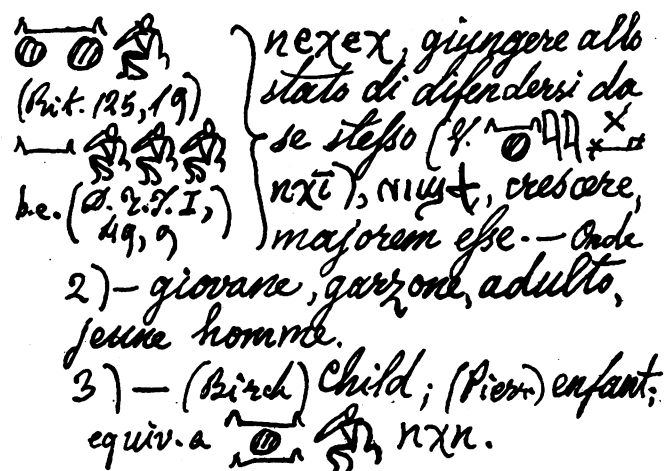 (Rit. 125,19)
b.e.
49,9)
neχeχ, giungere allo
stato di difendersi da
se steſso (V.
nχī), ⲛⲓϣϯ, crescere,
majorem eſse. — Onde
2) — giovane, garzone, adulto,
jeune homme.
3) — (Birch) Child; (Pierr.) enfant;
equiv. a nχn.